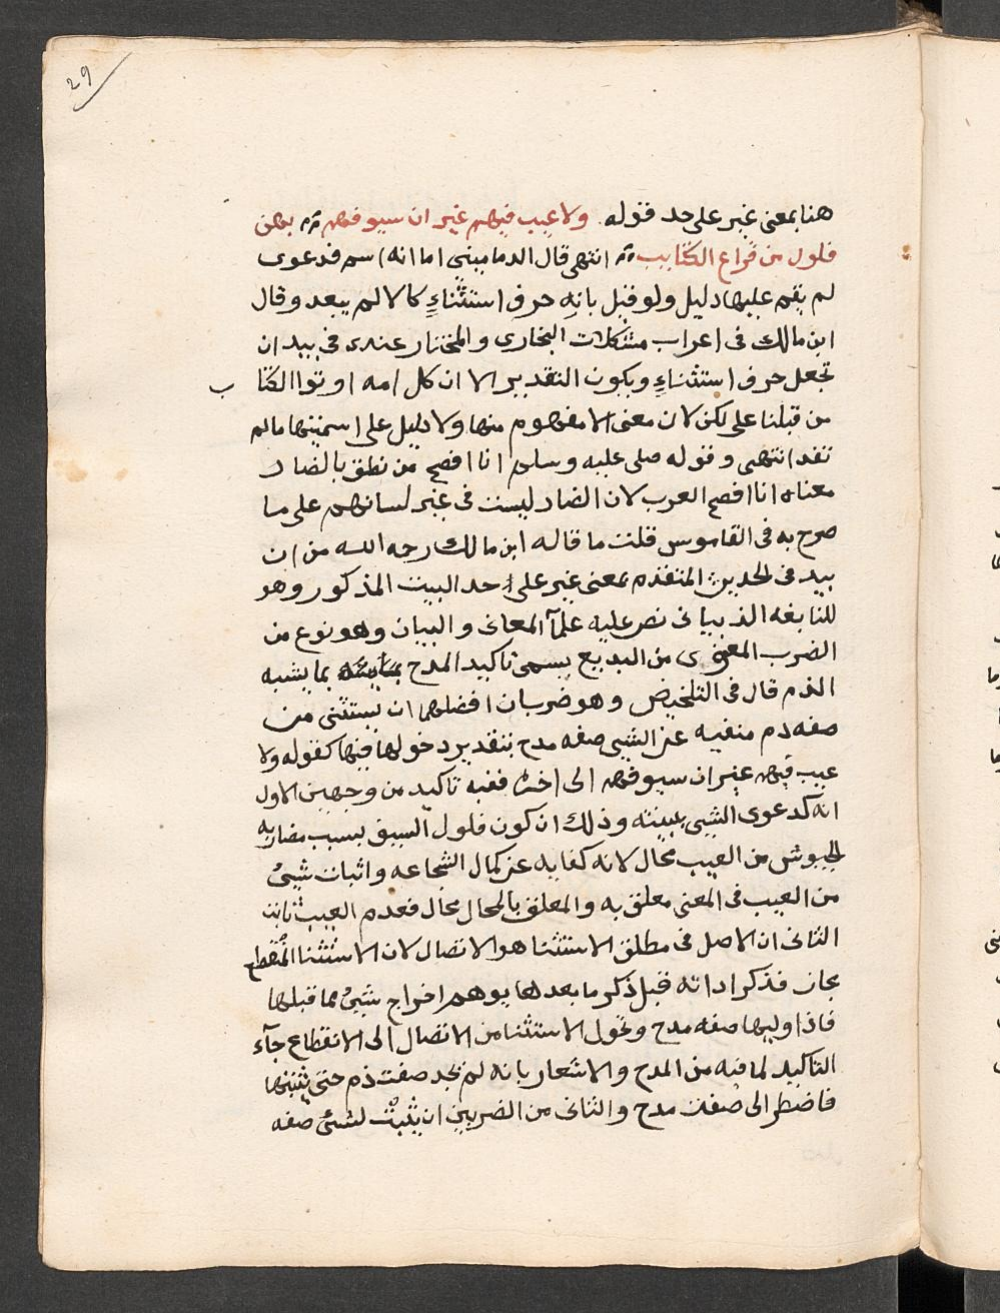 29
هنا بمعنى غير على حد قوله ولا عيب فيهم غير ان سيوفهم بهن
فلول من قراع الكتايب انتهى قال الدماميني اما انه اسم فدعوى
لم يقم عليها دليل ولو قيل بانه حرف استثناءٍ كالا لم يبعد وقال
ابن مالك فى اعراب مشكلات البخارى والمختار عندى فى بيد ان
تجعل حرف استثناءٍ ويكون التقدير الا ان كل امه اوتوا الكتاب
من قبلنا على لكن لان معنى الا مفهوم منها ولا دليل على اسميتها مالم
تفد انتهى وقوله صلى عليه وسلم انا افصح من نطق بالضاد
معناه انا افصح العرب لان الضاد ليست فى غير لسانهم على ما
صرح به فى القاموس قلت ما قاله ابن مالك رحه الله من ان
بيد فى الحديث المتقدم بمعنى غير على حد البيت المذكور وهو
للنابغه الذبيانى نص عليه علمآ المعانى والبيان وهو نوع من
الضرب المعنوى من البديع يسمى تاكيد المدح بما يشبه
الذم قال فى التلخيص وهو ضربان افضلهما ان يستثنى من
صفه ذم منفيه عن الشيى صفه مدح بتقدير دخولها فيها كقوله ولا
عيب فيهم غير ان سيوفهم الى اخره ففيه تاكيد من وجهين الاول
انه كدعوى الشيى ببينته وذلك ان كون فلول السيف بسبب مضاربه
الجيوش من العيب محال لانه كنايه عن كمال الشجاعه واثبات شيئ
من العيب فى المعنى معلق به والمعلق بالمحال محال فعدم العيب ثابت
الثانى ان الاصل فى مطلق الاستثنا هو الاتصال لان الاستثنا المنقطع
مجاز فذكر اداته قبل ذكر ما بعدها يوهم اخراج شيئ مما قبلها
فاذا وليها صفه مدح وتحول الاستثنا من الاتصال الى الانقطاع جآء
التاكيد لما فيه من المدح والاشعار بانه لم يجد صفت ذم حتى يثبتها
فاضطر الى صفت مدح والثانى من الضربين ان يثبت لشئ صفه